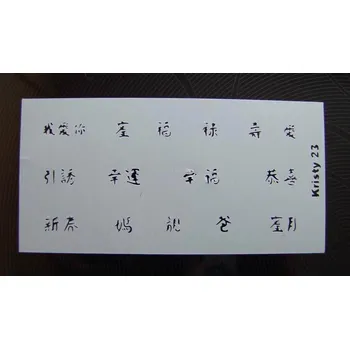 我愛你 福 祿 壽 愛
引誘 幸運 幸福 恭喜
新春 媽 龍 爸
Kristy 23